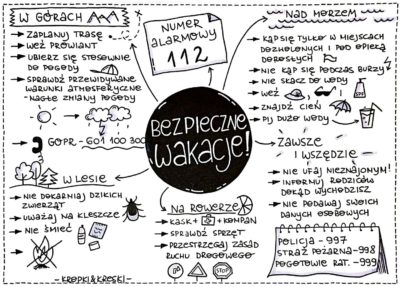 W GÓRACH
ZAPLANUJ TRASĘ
WEŹ PROWIANT
UBIERZ SIĘ STOSOWNIE
DO POGODY
SPRAWDŹ PRZEWIDYWANE
WARUNKI ATMOSFERYCZNE
- NAGŁE ZMIANY POGODY
GOPR - 601 100 300
W LESIE
NIE DOKARMIAJ DZIKICH
ZWIERZĄT
UWAŻAJ NA KLESZCZE
NIE ŚMIEĆ
- KROPKI&KRESKI -
NUMER
ALARMOWY
112
BEZPIECZNE
WAKACJE!
NA ROWERZE
KASK + KOMPAN
SPRAWDŹ SPRZĘT
PRZESTRZEGAJ ZASAD
RUCHU DROGOWEGO
STOP
NAD MORZEM
KĄP SIĘ TYLKO W MIEJSCACH
DOZWOLONYCH I POD OPIEKĄ
DOROSŁYCH
NIE KĄP SIĘ PODCZAS BURZY
NIE SKACZ DO WODY
WEŹ
SPF
ZNAJDŹ CIEŃ
PIJ DUŻO WODY
ZAWSZE
I WSZĘDZIE
NIE UFAJ NIEZNAJOMYM!
INFORMUJ RODZICÓW
DOKĄD WYCHODZISZ
NIE PODAWAJ SWOICH
DANYCH OSOBOWYCH
POLICJA - 997
STRAŻ POŻARNA - 998
POGOTOWIE RAT. - 999